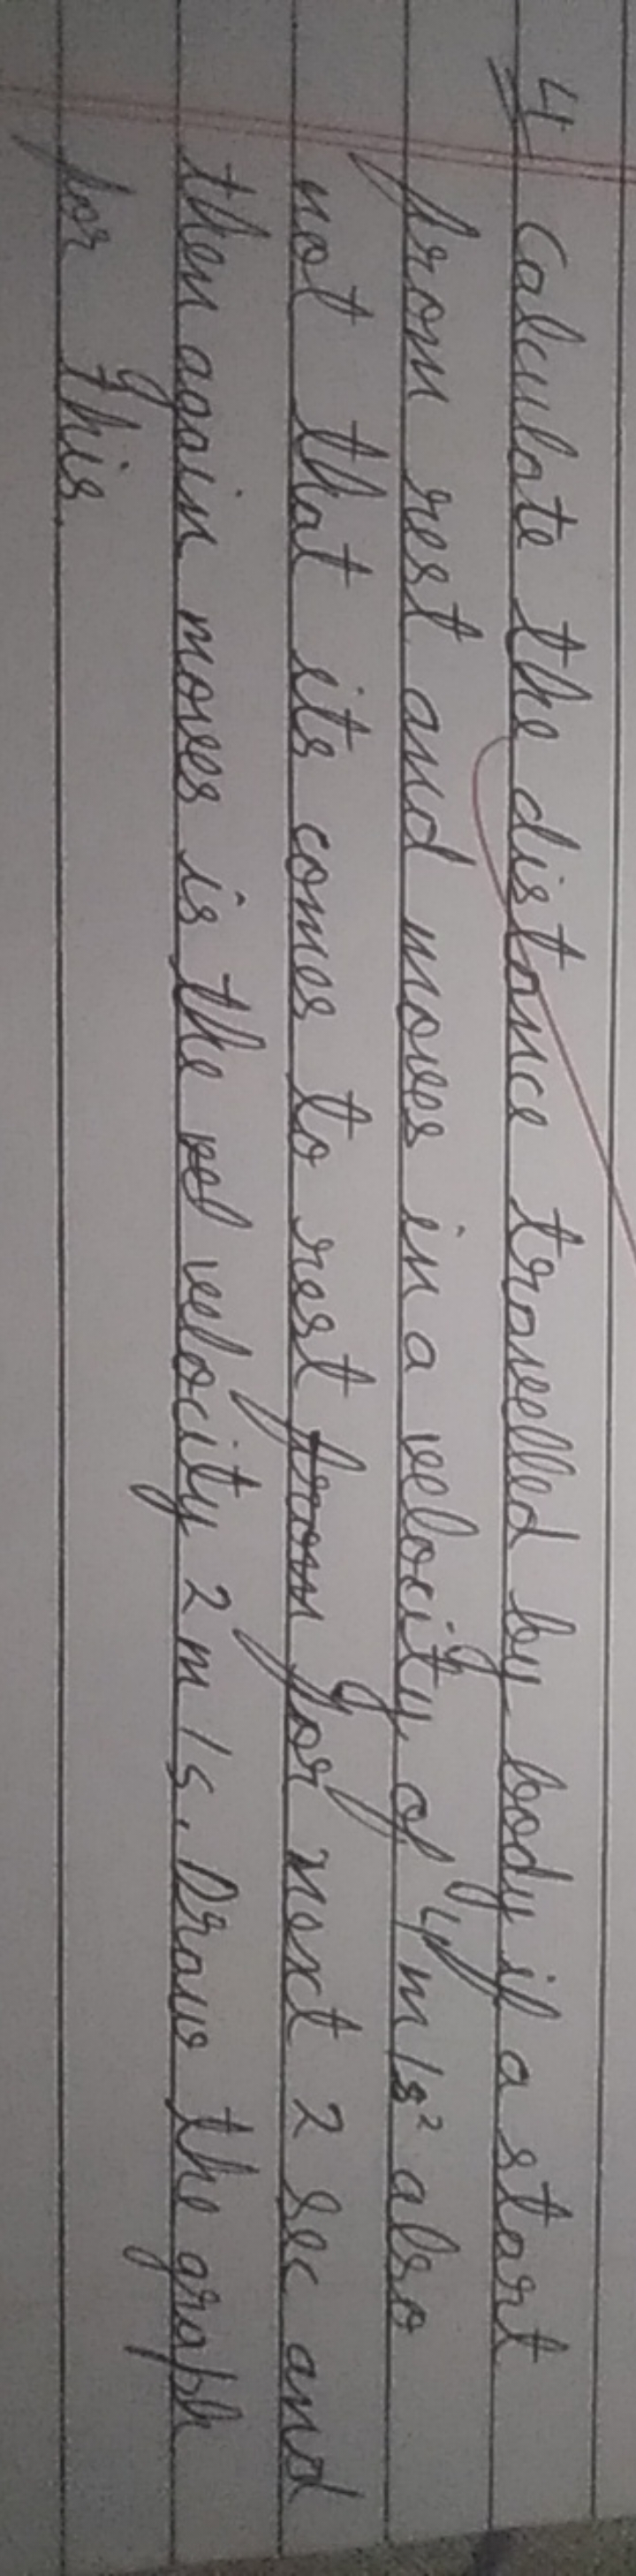 4 Calculate the distance travelled by body if a start
from rest and moves in a velocity of 4 m/s² also
not that its comes to rest from for next 2 sec and
then again moves is the vel velocity 2 m/s. Draw the graph
for this.